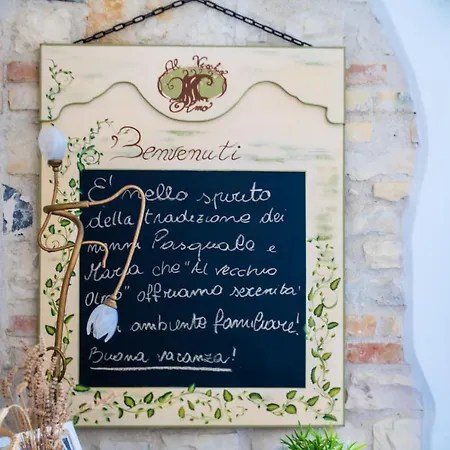 Al Vecchio
Olmo
Benvenuti
E' nello spirito
della tradizione dei
nonni Pasquale e
Maria che "Al vecchio
olmo" offriamo serenita'
ambiente familiare!
Buona vacanza!